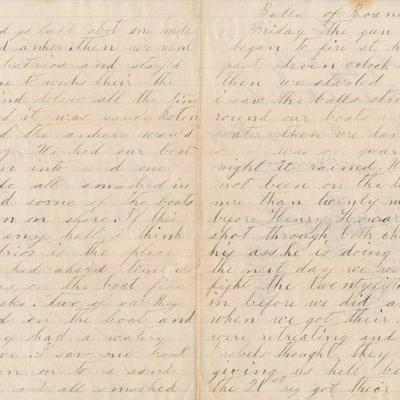 go back abot one mile
ankor then we went
hatrios and stayd
me to weeks their the
ind blow all the time
d it was sandy Below
d the ankers would
We had our boat
n into and one
de all smashed in
d some of the boats
n on shore. If this
eny hell i think
trios is the place
had ahard time we
on the boat five
eks. two of our Reg
d on the boat and
ey had a watery
ve. I saw one boat
en on to a sand
and all smashed
Battle of Roanoke
Friday the gun
began to fire at h
past eleven oclock a
then we started
i saw the balls stri
round our boats in
water then we lan
was on guar
night it rained. W
not been on the ba
me than twenty m
before Henry Howar
shot through both ch
his ass he is doing
the next day we wen
fight the twentyfift
in before we did a
when we got their
were retreating and
rebels thought they
giving us hell be
the 21st reg got their